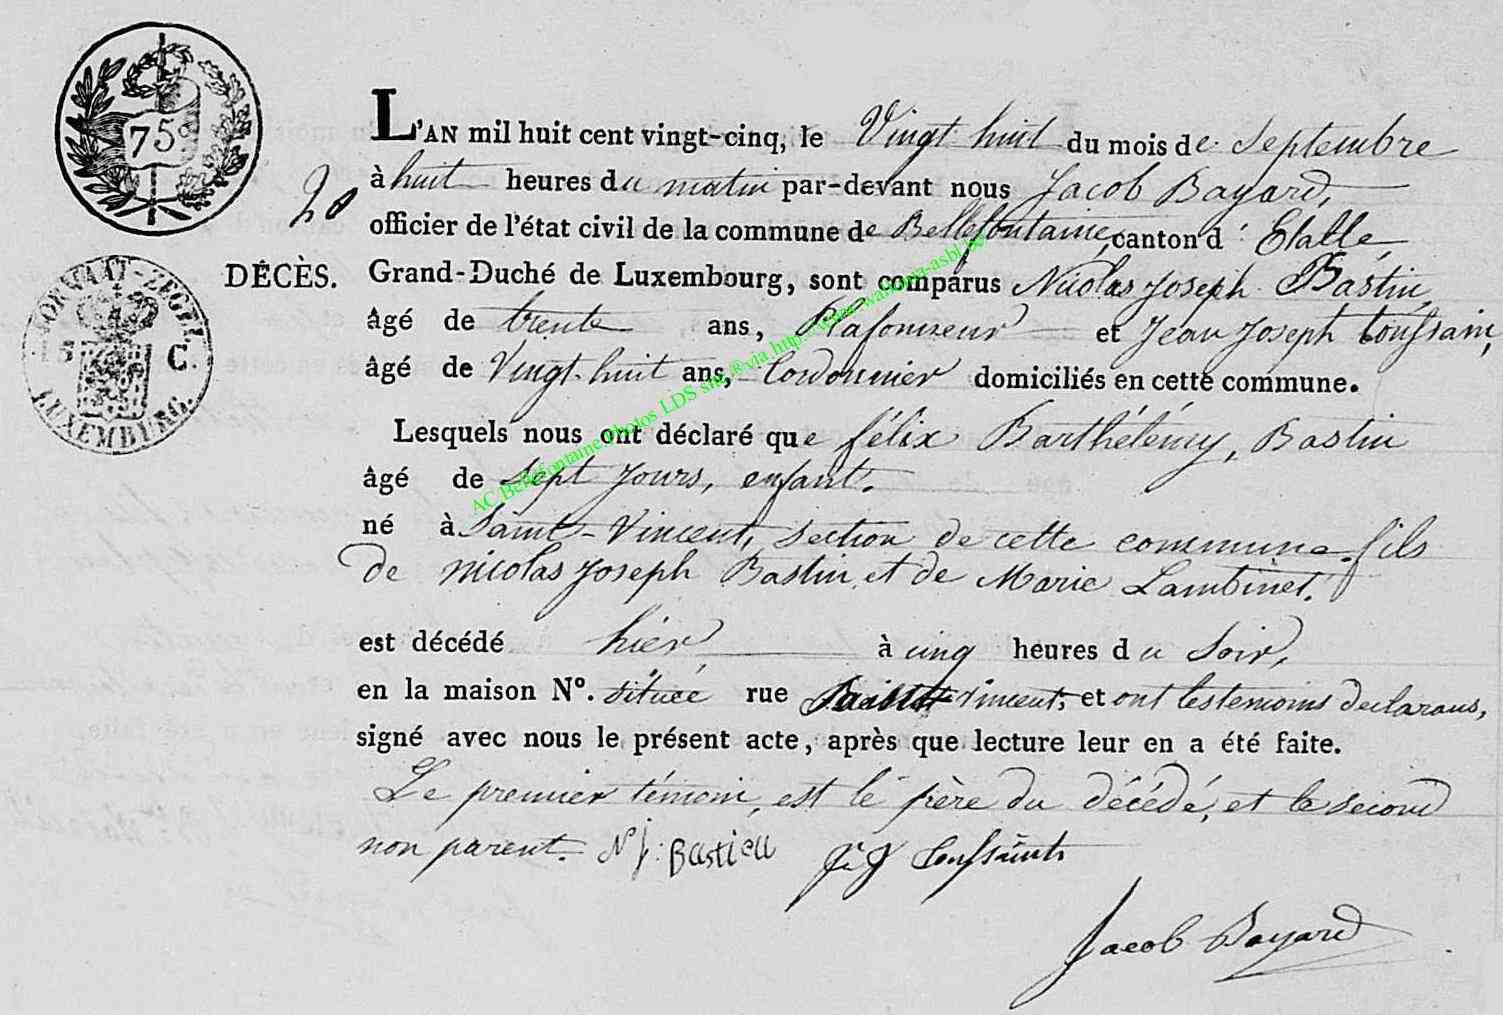 75 c
L'AN mil huit cent vingt-cinq, le Vingt huit du mois de Septembre
à huit heures du matin par-devant nous Jacob Bayard,
20
officier de l'état civil de la commune de Bellefontaine, canton d'Etalle,
DÉCÈS.
Grand-Duché de Luxembourg, sont comparus Nicolas Joseph Bastin,
âgé de trente ans, Plafonneur et Jean Joseph Toussain,
âgé de Vingt-huit ans, Cordonnier domiciliés en cette commune.
C.
LUXEMBURG.
Lesquels nous ont déclaré que félix Barthélémy, Bastin
âgé de Sept Jours, enfant.
né à Saint-Vincent, section de cette commune fils
de nicolas Joseph Bastin et de Marie Lambinet.
est décédé hier à cinq heures du Soir,
en la maison Nº. située rue Vincent, et ont les temoins declarans,
signé avec nous le présent acte, après que lecture leur en a été faite.
Le premier témoin, est le père du décédé, et le second
non parent. N j: Bastien J J Toussaint
Jacob Bayard
AC Bellefontaine Photos LDS